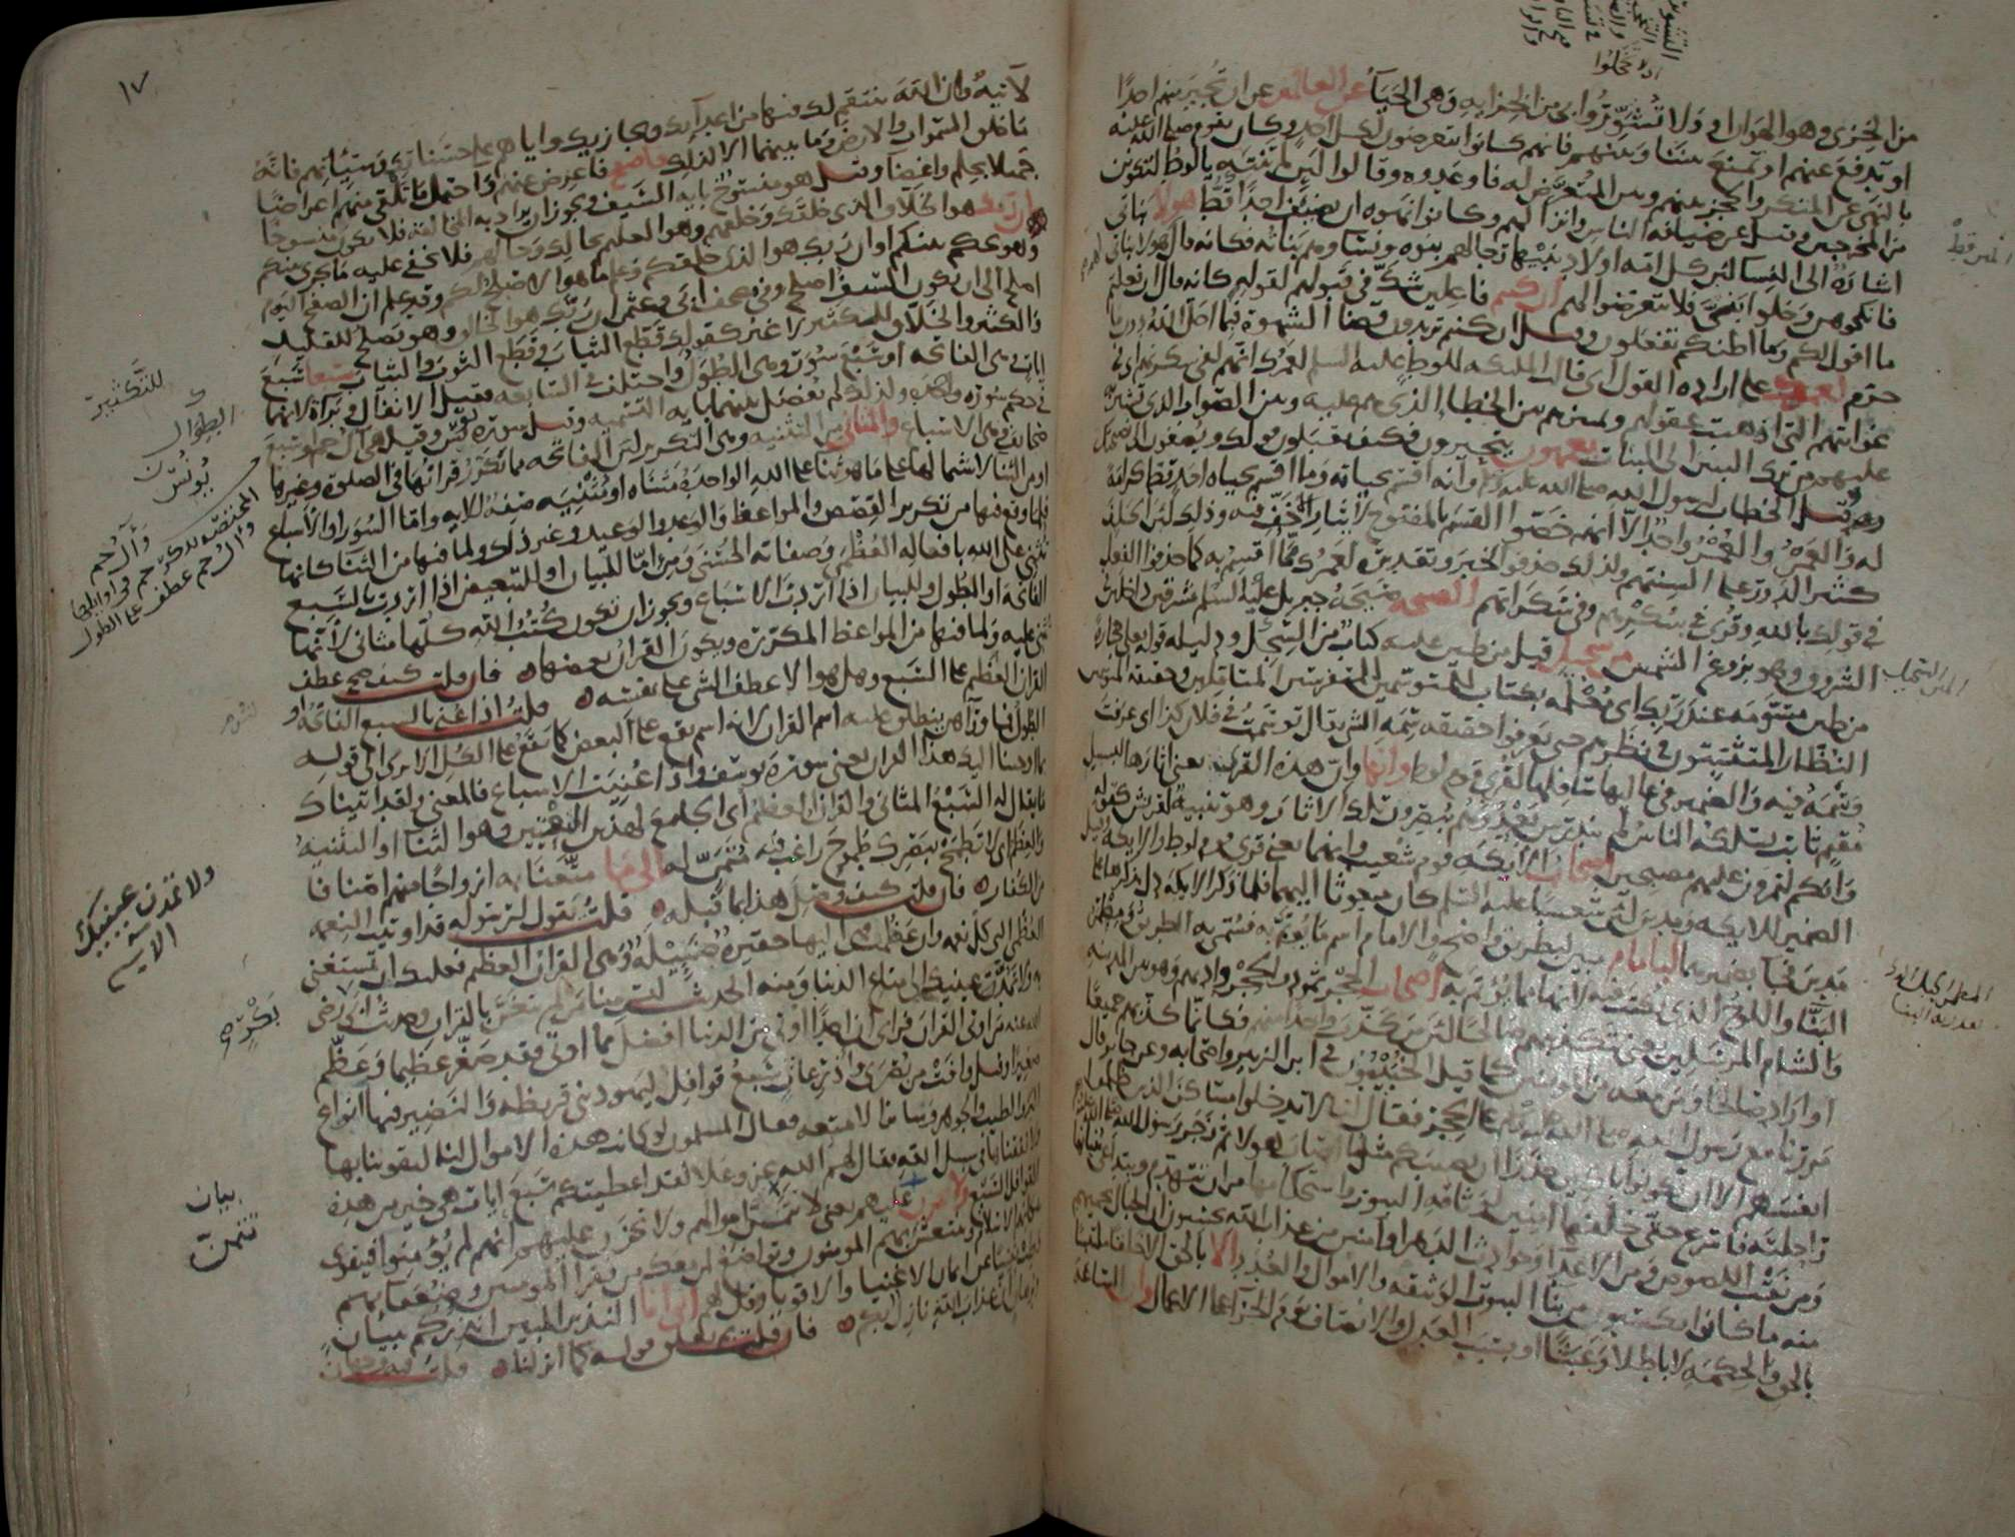 من الخزى وهو الهوان او ولا تشوروا بى من الخزاية وهى الحياء عن العالمين عن ان تجير منهم احدا
او تدفع عنهم او تمنع بيننا وبينهم فانهم كانوا يتعرضون لكل احد وكان يقوم صلى الله عليه
بالنهى عن المنكر والحجز بينهم وبين المتعرض له فاوعدوه وقالوا لئن لم تنته يا لوط لتكونن
من المخرجين وقيل عن ضيافة الناس وانزالهم وكانوا نهوه ان يضيف احدا قط هولاء بناتى
اشارة الى النساء لان كل امة اولاد نبيها رجالهم بنوه ونساؤهم بناته فكانه قال هولاء بناتى
فانكحوهن وخلوا بنى فلا تتعرضوا لهم ان كنتم فاعلين شك فى قبولهم لقوله كانه قال ان فعلتم
ما اقول لكم وما اظنكم تفعلون وقيل ان كنتم تريدون قضاء الشهوة فيما احل الله دون ما
حرم لعمرك على ارادة القول اى قالت الملئكة للوط عليه السلم لعمرك انهم لفى سكرتهم اى
غوايتهم التى اذهبت عقولهم وتمييزهم بين الخطاء الذى هم عليه وبين الصواب الذى تشير به
عليهم من ترك البنين الى البنات يعمهون يتحيرون فكيف يقبلون قولك ويصغون الى نصيحتك
وقيل الخطاب لرسول الله صلى الله عليه وانه اقسم بحياته وما اقسم بحياة احد قط كرامة
له والعَمر والعُمر واحد الا انهم خصوا القسم بالمفتوح لايثار الاخف فيه وذلك لان الحلف
كثير الدور على السنتهم ولذلك حذفوا الخبر وتقديره لعمرك مما اقسم به كما حذفوا الفعل
فى قولك بالله وقرئ فى سكرهم وفى سكراتهم الصيحة صيحة جبريل عليه السلم مشرقين داخلين
الشروق وهو بزوغ الشمس من سجيل قيل من طين عليه كتاب من السجل ودليله قوله تعلى حجارة
من طين مسومة عند ربك اى معلمة بكتاب للمتوسمين المتفرسين المتاملين وحقيقة المتوسمين
النظار المتثبتون فى نظرهم حتى يعرفوا حقيقة سمة الشئ يقال توسمت فى فلان كذا اى عرفت
وسمه فيه والضمير فى عاليها سافلها لقرى قوم لوط وانها وان هذه القرى يعنى اثارها لبسبيل
مقيم ثابت يسلكه الناس لم يندرس بعد وهم يبصرون تلك الاثار وهو تنبيه لقريش كقوله
وانكم لتمرون عليهم مصبحين اصحاب الايكة قوم شعيب وانهما يعنى قرى قوم لوط والايكة وقيل
الضمير للايكة ومدين لان شعيبا عليه السلم كان مبعوثا اليهما فلما ذكر الايكة دل بذكرها على
مدين فجاء بضميرهما لبامام مبين لبطريق واضح والامام اسم ما يؤتم به فسمى به الطريق ومطمر
البناء واللوح الذى يكتب فيه لانها مما يؤتم به اصحاب الحجر ثمود والحجر واديهم وهو بين المدينة
والشام المرسلين يعنى بتكذيبهم صالحا لان من كذب واحدا منهم فكانما كذبهم جميعا
او اراد صالحا ومن معه من المومنين كما قيل الخبيبون فى ابن الزبير واصحابه وعن جابر قال
مررنا مع رسول الله صلى الله عليه وسلم على الحجر فقال لنا لا تدخلوا مساكن الذين ظلموا
انفسهم الا ان تكونوا باكين حذرا ان يصيبكم مثل ما اصاب هولاء ثم زجر رسول الله صلى الله عليه
راحلته فاسرع حتى خلفها امنين لوثاقة البيوت واستحكامها من ان تتهدم ويتداعى بنيانها
ومن نقب اللصوص ومن الاعداء وحوادث الدهر او امنين من عذاب الله يحسبون ان الجبال تحميهم
منه ما كانوا يكسبون من بناء البيوت الوثيقة والاموال والعدد الا بالحق الا خلقا ملتبسا
بالحق والحكمة لا باطلا وعبثا او بسبب العدل والانصاف يوم الجزاء على الاعمال وان الساعة
١٧
لاتية وان الله ينتقم لك فيها من اعدائك ومجازيك واياهم على حسناتك وسيئاتهم فانه
ما خلق السموات والارض وما بينهما الا لذلك فاصفح فاعرض عنهم واحتمل ما تلقى منهم اعراضا
جميلا بحلم واغضاء وقيل هو منسوخ باية السيف ويجوز ان يراد به المخالقة فلا يكون منسوخا
ان ربك هو الخلاق الذى خلقك وخلقهم وهو العليم بحالك وحالهم فلا يخفى عليه ما يجرى بينكم
وهو يحكم بينكم او ان ربك هو الذى خلقكم وعلم ما هو الاصلح لكم وقد علم ان الصفح اليوم
اصلح الى ان يكون السيف اصلح وفى مصحف ابى وعثمن ان ربك هو الخالق وهو يصلح للقليل
والكثير والخلاق للتكثير لا غير كقولك قطع الثياب وقطع الثوب والثياب سبعا سبع
ايات وهى الفاتحة او سبع سور وهى الطول واختلف فى السابعة فقيل الانفال وبراءة لانهما
فى حكم سورة واحدة ولذلك لم يفصل بينهما باية التسمية وقيل سورة يونس وقيل هى ال حم او سبع
صحائف وهى الاسباع والمثانى من التثنية وهى التكرير لان الفاتحة مما تكرر قراتها فى الصلوة وغيرها
او من الثناء لاشتمالها على ما هو ثناء على الله الواحدة مثناة او مثنية صفة للاية واما السور او الاسباع
فلما وقع فيها من تكرير القصص والمواعظ والوعد والوعيد وغير ذلك ولما فيها من الثناء كانها
تثنى على الله بافعاله العظمى وصفاته الحسنى ومن اما للبيان او للتبعيض اذا اردت بالسبع
الفاتحة او الطول وللبيان اذا اردت الاسباع ويجوز ان تكون كتب الله كلها مثانى لانها
تثنى عليه ولما فيها من المواعظ المكررة ويكون القران بعضها فان قلت كيف صح عطف
القران العظيم على السبع وهل هو الا عطف الشئ على نفسه قلت اذا عنى بالسبع الفاتحة او
الطول فما وراءهن ينطلق عليه اسم القران لانه اسم يقع على البعض كما يقع على الكل الا ترى الى قوله
بما اوحينا اليك هذا القران يعنى سورة يوسف واذا عنيت الاسباع فالمعنى ولقد اتيناك
ما يقال له السبع المثانى والقران العظيم اى الجامع لهذين النعتين وهو الثناء او التثنية
والعظم اى لا تطمح ببصرك طموح راغب فيه متمن له الى ما متعنا به ازواجا منهم اصنافا
من الكفار فان قلت كيف وصل هذا بما قبله قلت يقول لرسوله قد اوتيت النعمة
العظمى التى كل نعمة وان عظمت فهى اليها حقيرة ضئيلة وهى القران العظيم فعليك ان تستغنى
به ولا تمدن عينيك الى متاع الدنيا ومنه الحديث ليس منا من لم يتغن بالقران وحديث ابى بكر رضى
الله عنه من اوتى القران فراى ان احدا اوتى من الدنيا افضل مما اوتى فقد صغر عظيما وعظم
صغيرا وقيل وافت من بصرى واذرعات سبع قوافل ليهود بنى قريظة والنضير فيها انواع
البز والطيب والجوهر وسائر الامتعة فقال المسلمون لو كانت هذه الاموال لنا لتقوينا بها
ولانفقناها فى سبيل الله فقال لهم الله عز وعلا لقد اعطيتكم سبع ايات هى خير من هذه
القوافل السبع ولا تحزن عليهم يعنى لا تتمن اموالهم ولا تحزن عليهم انهم لم يؤمنوا فيتقوى
بمكانهم الاسلام وينتعش بهم المومنون وتواضع لمن معك من فقراء المومنين وضعفائهم
وطب نفسا عن ايمان الاغنياء والاقوياء وقل لهم انى انا النذير المبين انذركم ببيان
وبرهان ان عذاب الله نازل بكم فان قلت بم تعلق قوله كما انزلنا قلت فيه وجهان
للتكثير
الطوال
يونس
وآل حم
ولا تمدن عينيك
الاية
بكر
بيان
تتمن